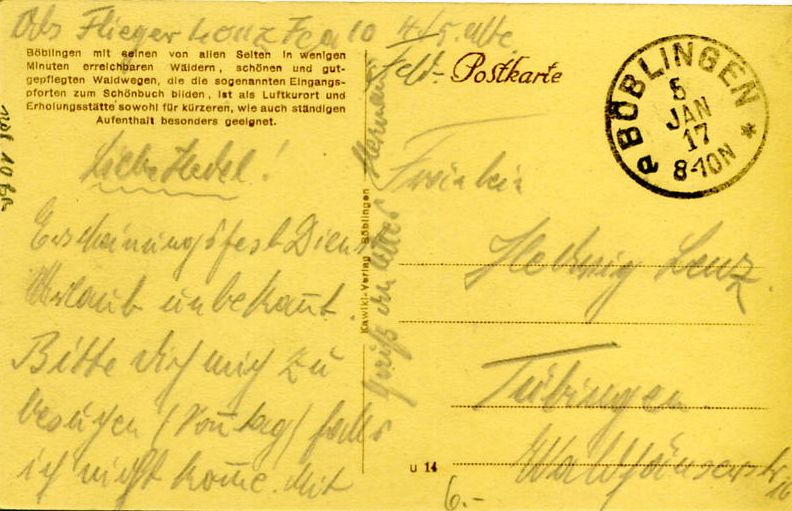 Abs Flieger Lenz
Böblingen mit seinen von allen Seiten in wenigen
Minuten erreichbaren Wäldern, schönen und gut-
gepflegten Waldwegen, die die sogenannten Eingangs-
pforten zum Schönbuch bilden, ist als Luftkurort und
Erholungsstätte sowohl für kürzeren, wie auch ständigen
Aufenthalt besonders geeignet.
Liebe Hedel!
Erscheinungsfest Dienst
Urlaub unbekannt.
Bitte dich mich zu
besuchen (Sonntag) falls
ich nicht komme. Mit
Gruß
Kawiki-Verlag Böblingen
Feld-Postkarte
BÖBLINGEN
5
JAN
17
8-10N
Fräulein
Hedwig Lenz
Tübingen
U 14
6.-